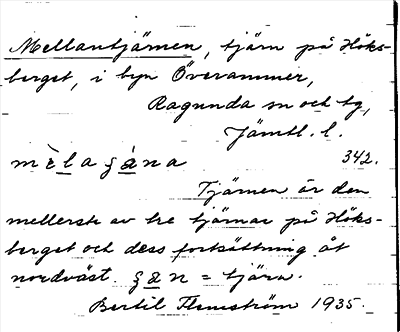 Mellantjärnen, tjärn på Höks-
berget, i byn Överammer,
Ragunda sn och tg,
Jämtl. l.
mèlaʒäna 342.
Tjärnen är den
mellerste av tre tjärnar på Höks-
berget och dess fortsättning åt
nordväst. ʒän = tjärn.
Bertil Flemström 1935.